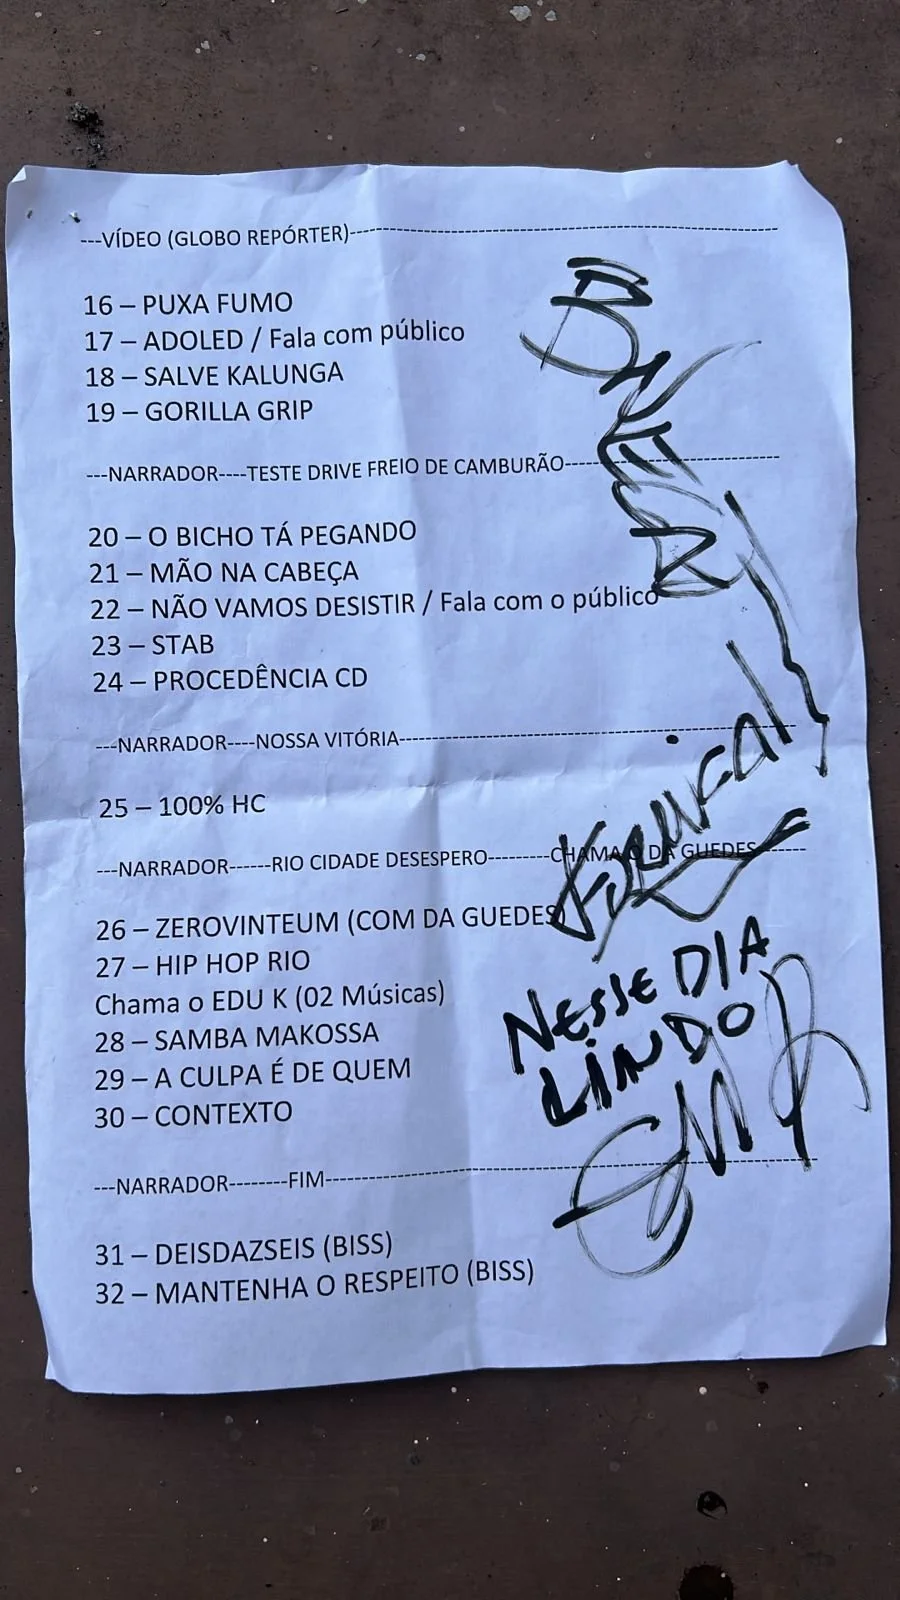 ---VÍDEO (GLOBO REPÓRTER)---
16 – PUXA FUMO
17 – ADOLED / Fala com público
18 – SALVE KALUNGA
19 – GORILLA GRIP
---NARRADOR----TESTE DRIVE FREIO DE CAMBURÃO---
20 – O BICHO TÁ PEGANDO
21 – MÃO NA CABEÇA
22 – NÃO VAMOS DESISTIR / Fala com o público
23 – STAB
24 – PROCEDÊNCIA CD
---NARRADOR----NOSSA VITÓRIA---
25 – 100% HC
---NARRADOR------RIO CIDADE DESESPERO---------CHAMA O DA GUEDES------
26 – ZEROVINTEUM (COM DA GUEDES)
27 – HIP HOP RIO
Chama o EDU K (02 Músicas)
28 – SAMBA MAKOSSA
29 – A CULPA É DE QUEM
30 – CONTEXTO
---NARRADOR--------FIM---
31 – DEISDAZSEIS (BISS)
32 – MANTENHA O RESPEITO (BISS)
NESSE DIA
LINDO